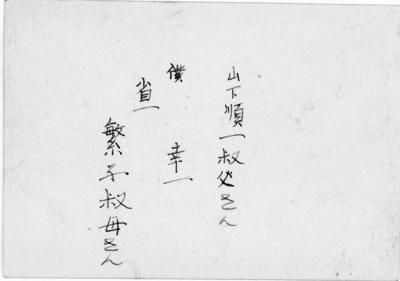 山下順一叔父さん
僕 幸一
省一
繁子叔母さん